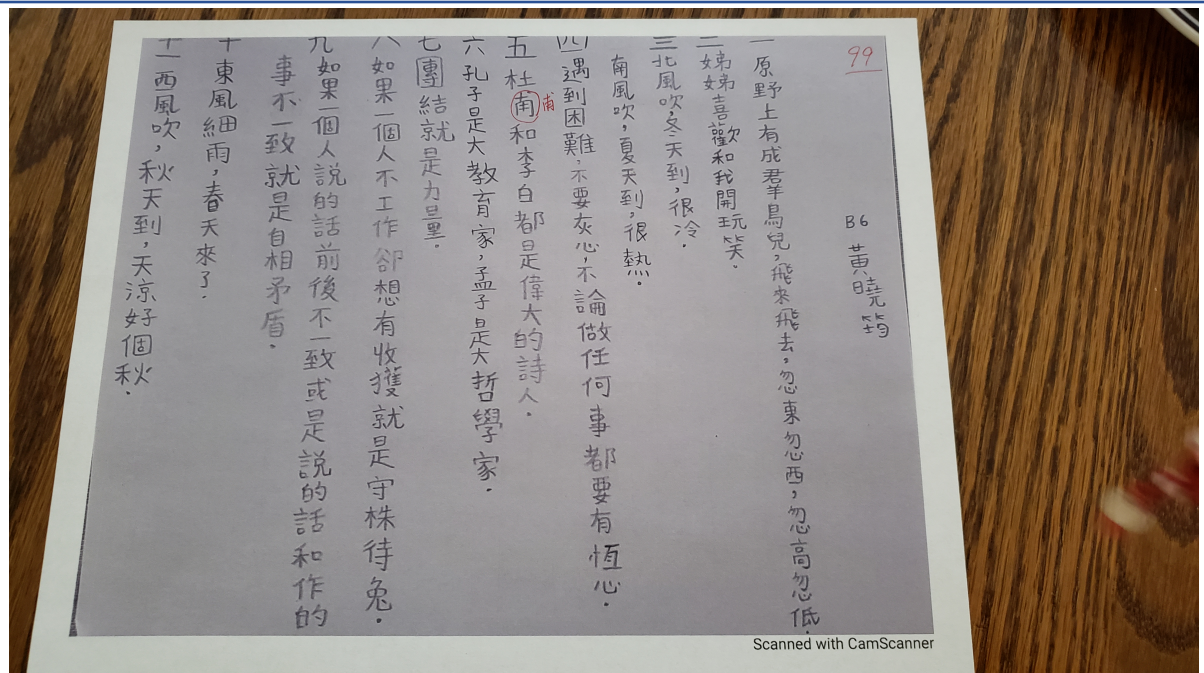 99
B6 黃曉筠
一原野上有成羣鳥兒,飛來飛去,忽東忽西,忽高忽低.
二娣娣喜歡和我開玩笑.
三北風吹,冬天到,很冷.
南風吹,夏天到,很熱.
四遇到困難,不要灰心,不論做任何事都要有恆心.
五杜甫和李白都是偉大的詩人.
甫
六孔子是大教育家,孟子是大哲學家.
七團結就是力量.
八如果一個人不工作卻想有收獲就是守株待兔.
九如果一個人說的話前後不一致或是說的話和作的
事不一致就是自相矛盾.
十東風細雨,春天來了.
十一西風吹,秋天到,天涼好個秋.
Scanned with CamScanner